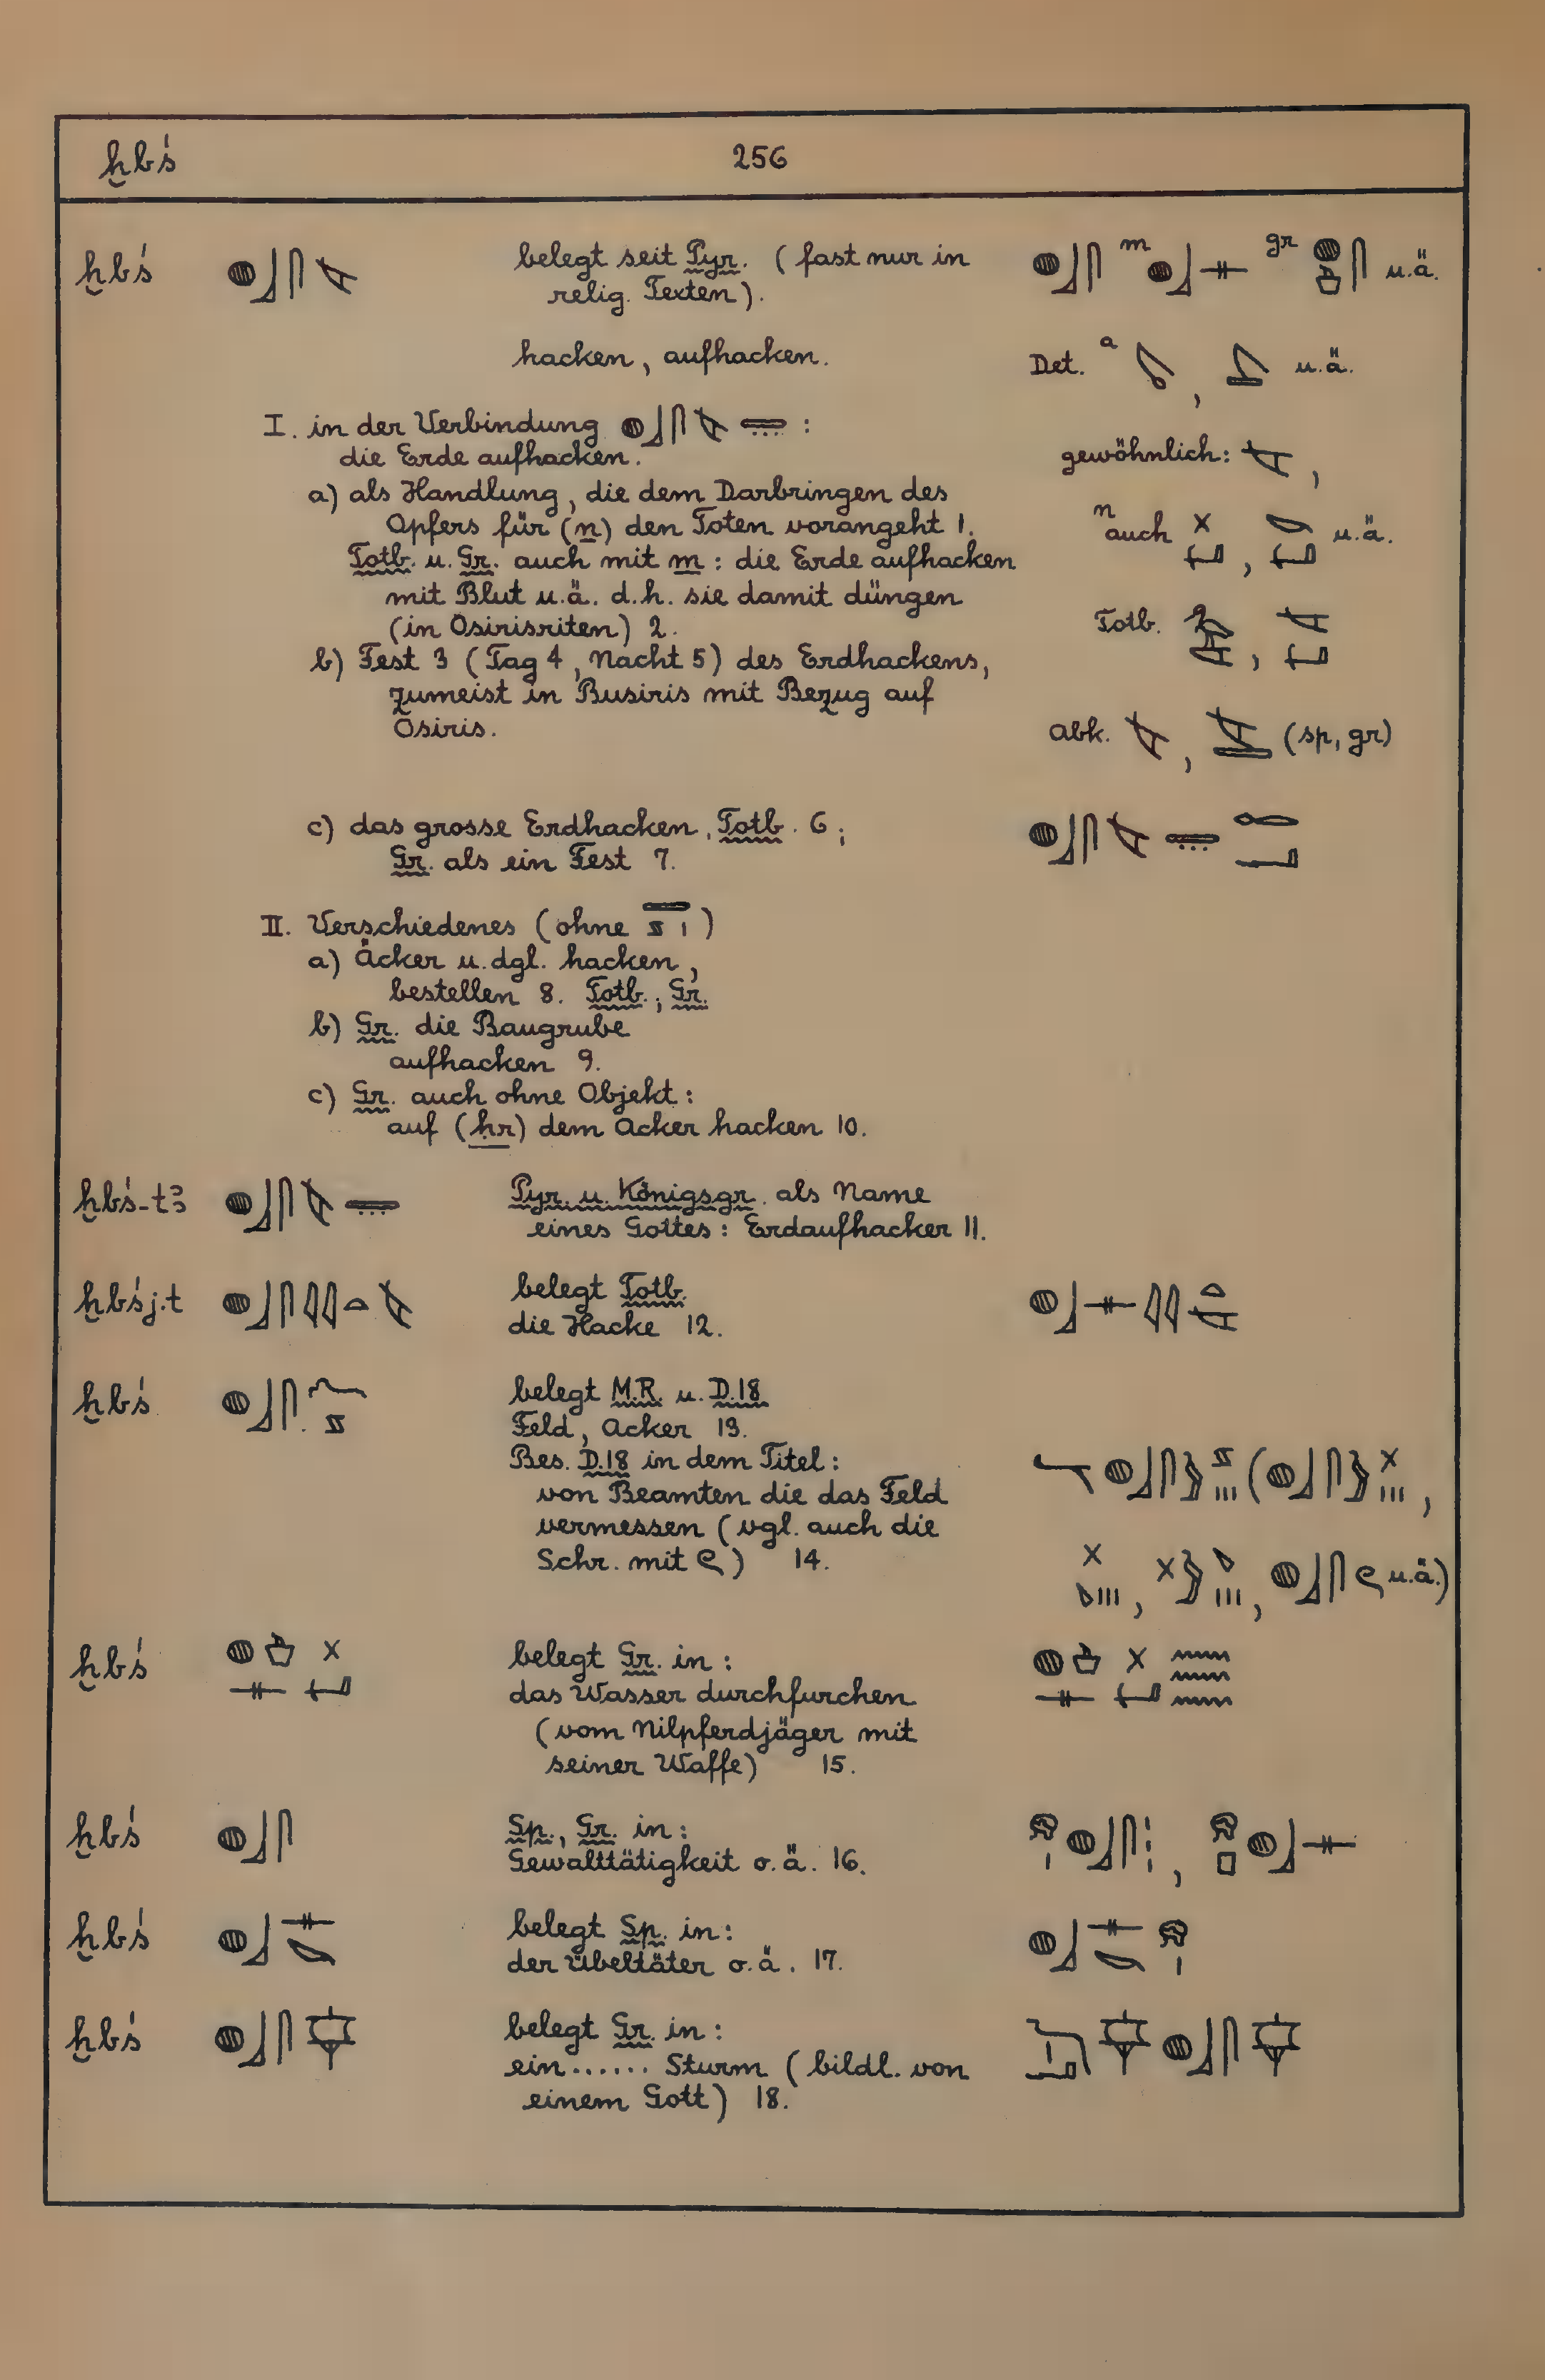 ḫbś 256
ḫbś belegt seit Pyr. (fast nur in
relig. Texten).
m gr u.ä.
hacken, aufhacken.
Det. a , u.ä.
I. in der Verbindung :
die Erde aufhacken.
gewöhnlich: ,
a) als Handlung, die dem Darbringen des
Opfers für (n) den Toten vorangeht 1.
n auch , u.ä.
Totb. u. Gr. auch mit m : die Erde aufhacken
mit Blut u.ä. d.h. sie damit düngen
(in Osirisriten) 2.
Totb. ,
b) Fest 3 (Tag 4, Nacht 5) des Erdhackens,
zumeist in Busiris mit Bezug auf
Osiris.
Abk. , (sp, gr)
c) das grosse Erdhacken, Totb. 6;
Gr. als ein Fest 7.
II. Verschiedenes (ohne )
a) Äcker u. dgl. hacken,
bestellen 8. Totb.; Gr.
b) Gr. die Baugrube
aufhacken 9.
c) Gr. auch ohne Objekt:
auf (ḥr) dem Acker hacken 10.
ḫbś-tꜣ Pyr. u. Königsgr. als Name
eines Gottes: Erdaufhacker 11.
ḫbśj.t belegt Totb.
die Hacke 12.
ḫbś belegt M.R. u. D.18
Feld, Acker 13.
Bes. D.18 in dem Titel:
von Beamten die das Feld
vermessen (vgl. auch die
Schr. mit ) 14.
( ,
, , u.ä.)
ḫbś belegt Gr. in:
das Wasser durchfurchen
(vom Nilpferdjäger mit
seiner Waffe) 15.
ḫbś Sp., Gr. in:
Gewalttätigkeit o.ä. 16.
ḫbś belegt Sp. in:
der Übeltäter o.ä. 17.
ḫbś belegt Gr. in:
ein...... Sturm (bildl. von
einem Gott) 18.